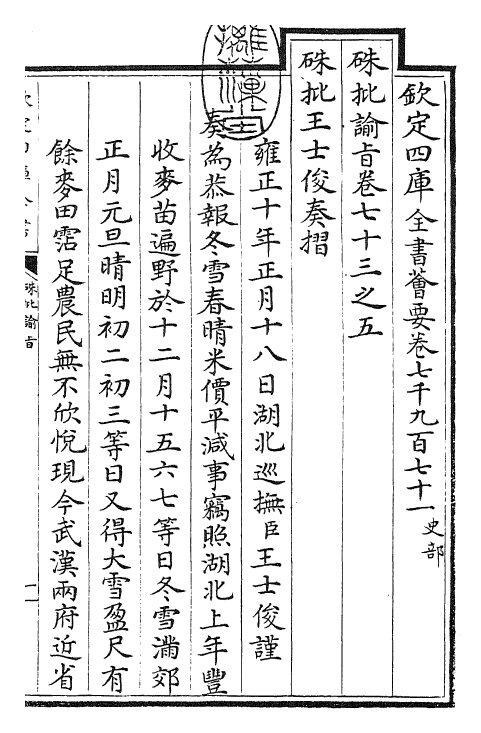 欽定四庫全書薈要卷七千九百七十一史部
硃批諭旨卷七十三之五
硃批王士俊奏摺
雍正十年正月十八日湖北巡撫臣王士俊謹
奏為恭報冬雪春晴米價平減事竊照湖北上年豐
收麥苗遍野於十二月十五六七等日冬雪滿郊
正月元旦晴明初二初三等日又得大雪盈尺有
餘麥田霑足農民無不欣悅現今武漢兩府近省
欽定四庫全書
硃批諭旨
一